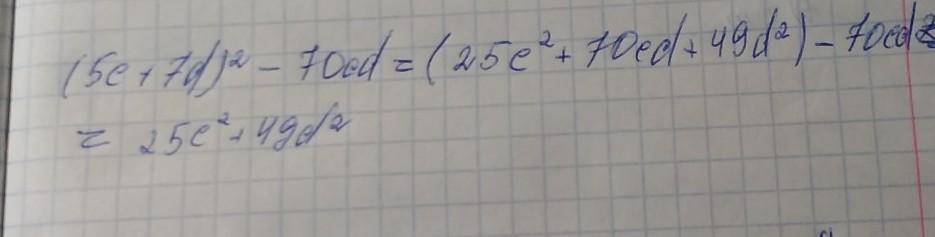 (5c+7d)² - 70cd = (25c² + 70cd + 49d²) - 70cd =
= 25c² + 49d²